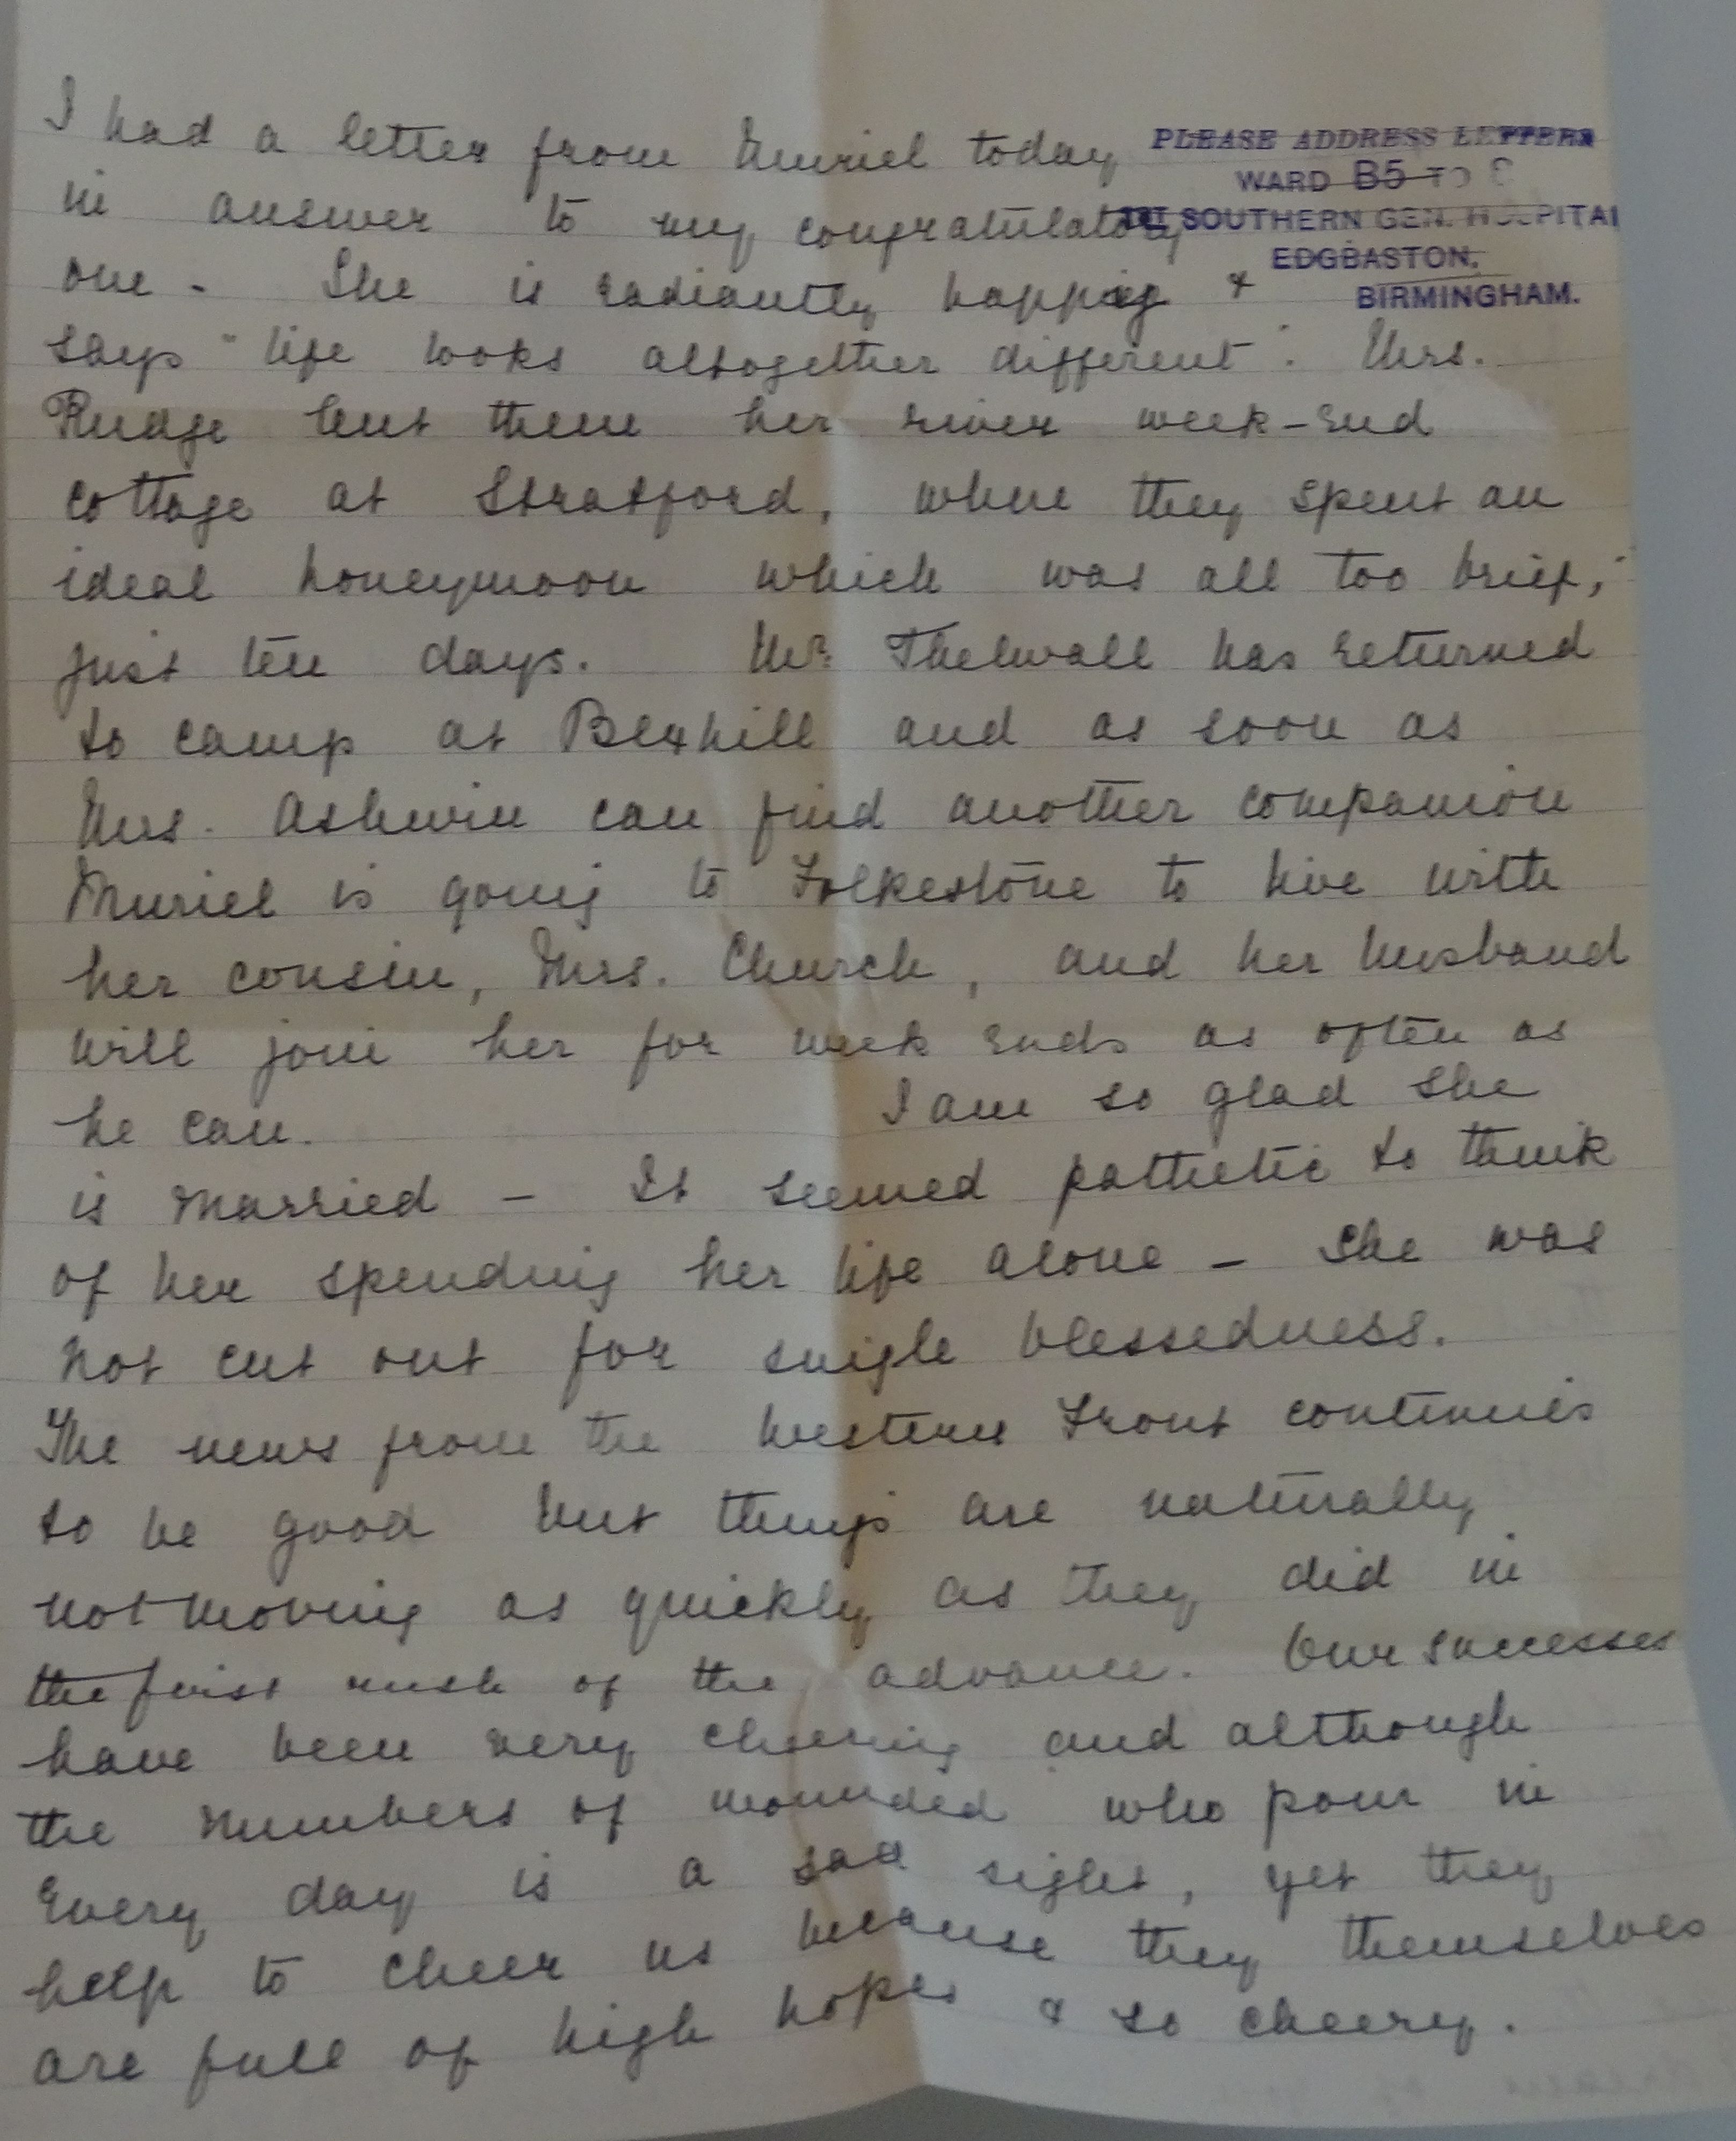 PLEASE ADDRESS LETTERS
WARD B5 TO
1ST SOUTHERN GEN. HOSPITAL
EDGBASTON,
BIRMINGHAM.
I had a letter from Muriel today
in answer to my congratulatory
one - She is radiantly happy &
says "life looks altogether different". Mrs.
Rudge lent them her river week-end
cottage at Stratford, where they spent an
ideal honeymoon which was all too brief,
just ten days. Mr. Thelwall has returned
to camp at Bexhill and as soon as
Mrs. Ashwin can find another companion
Muriel is going to Folkestone to live with
her cousin, Mrs. Church, and her husband
will join her for week ends as often as
he can. I am so glad she
is married - It seemed pathetic to think
of her spending her life alone - She was
not cut out for single blessedness.
The news from the Western Front continues
to be good but things are naturally
not moving as quickly as they did in
the first rush of the advance. Our successes
have been very cheering and although
the numbers of wounded who pour in
every day is a sad sight, yet they
help to cheer us because they themselves
are full of high hopes & so cheery.